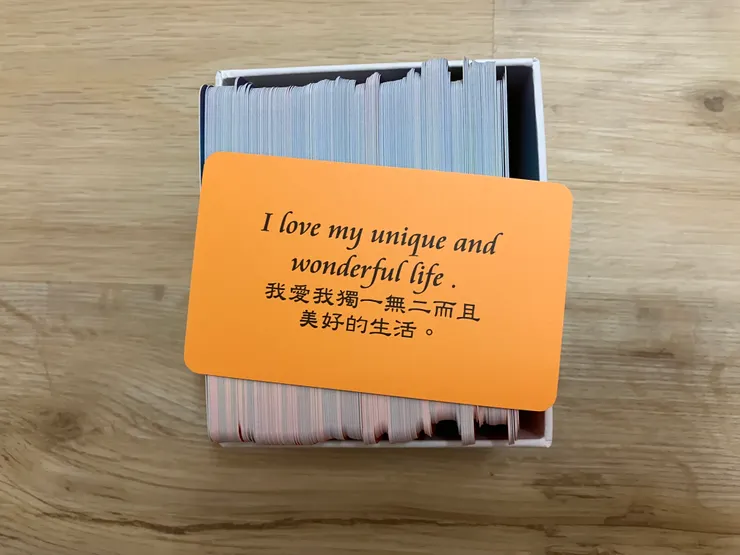 I love my unique and
wonderful life .
我愛我獨一無二而且
美好的生活。